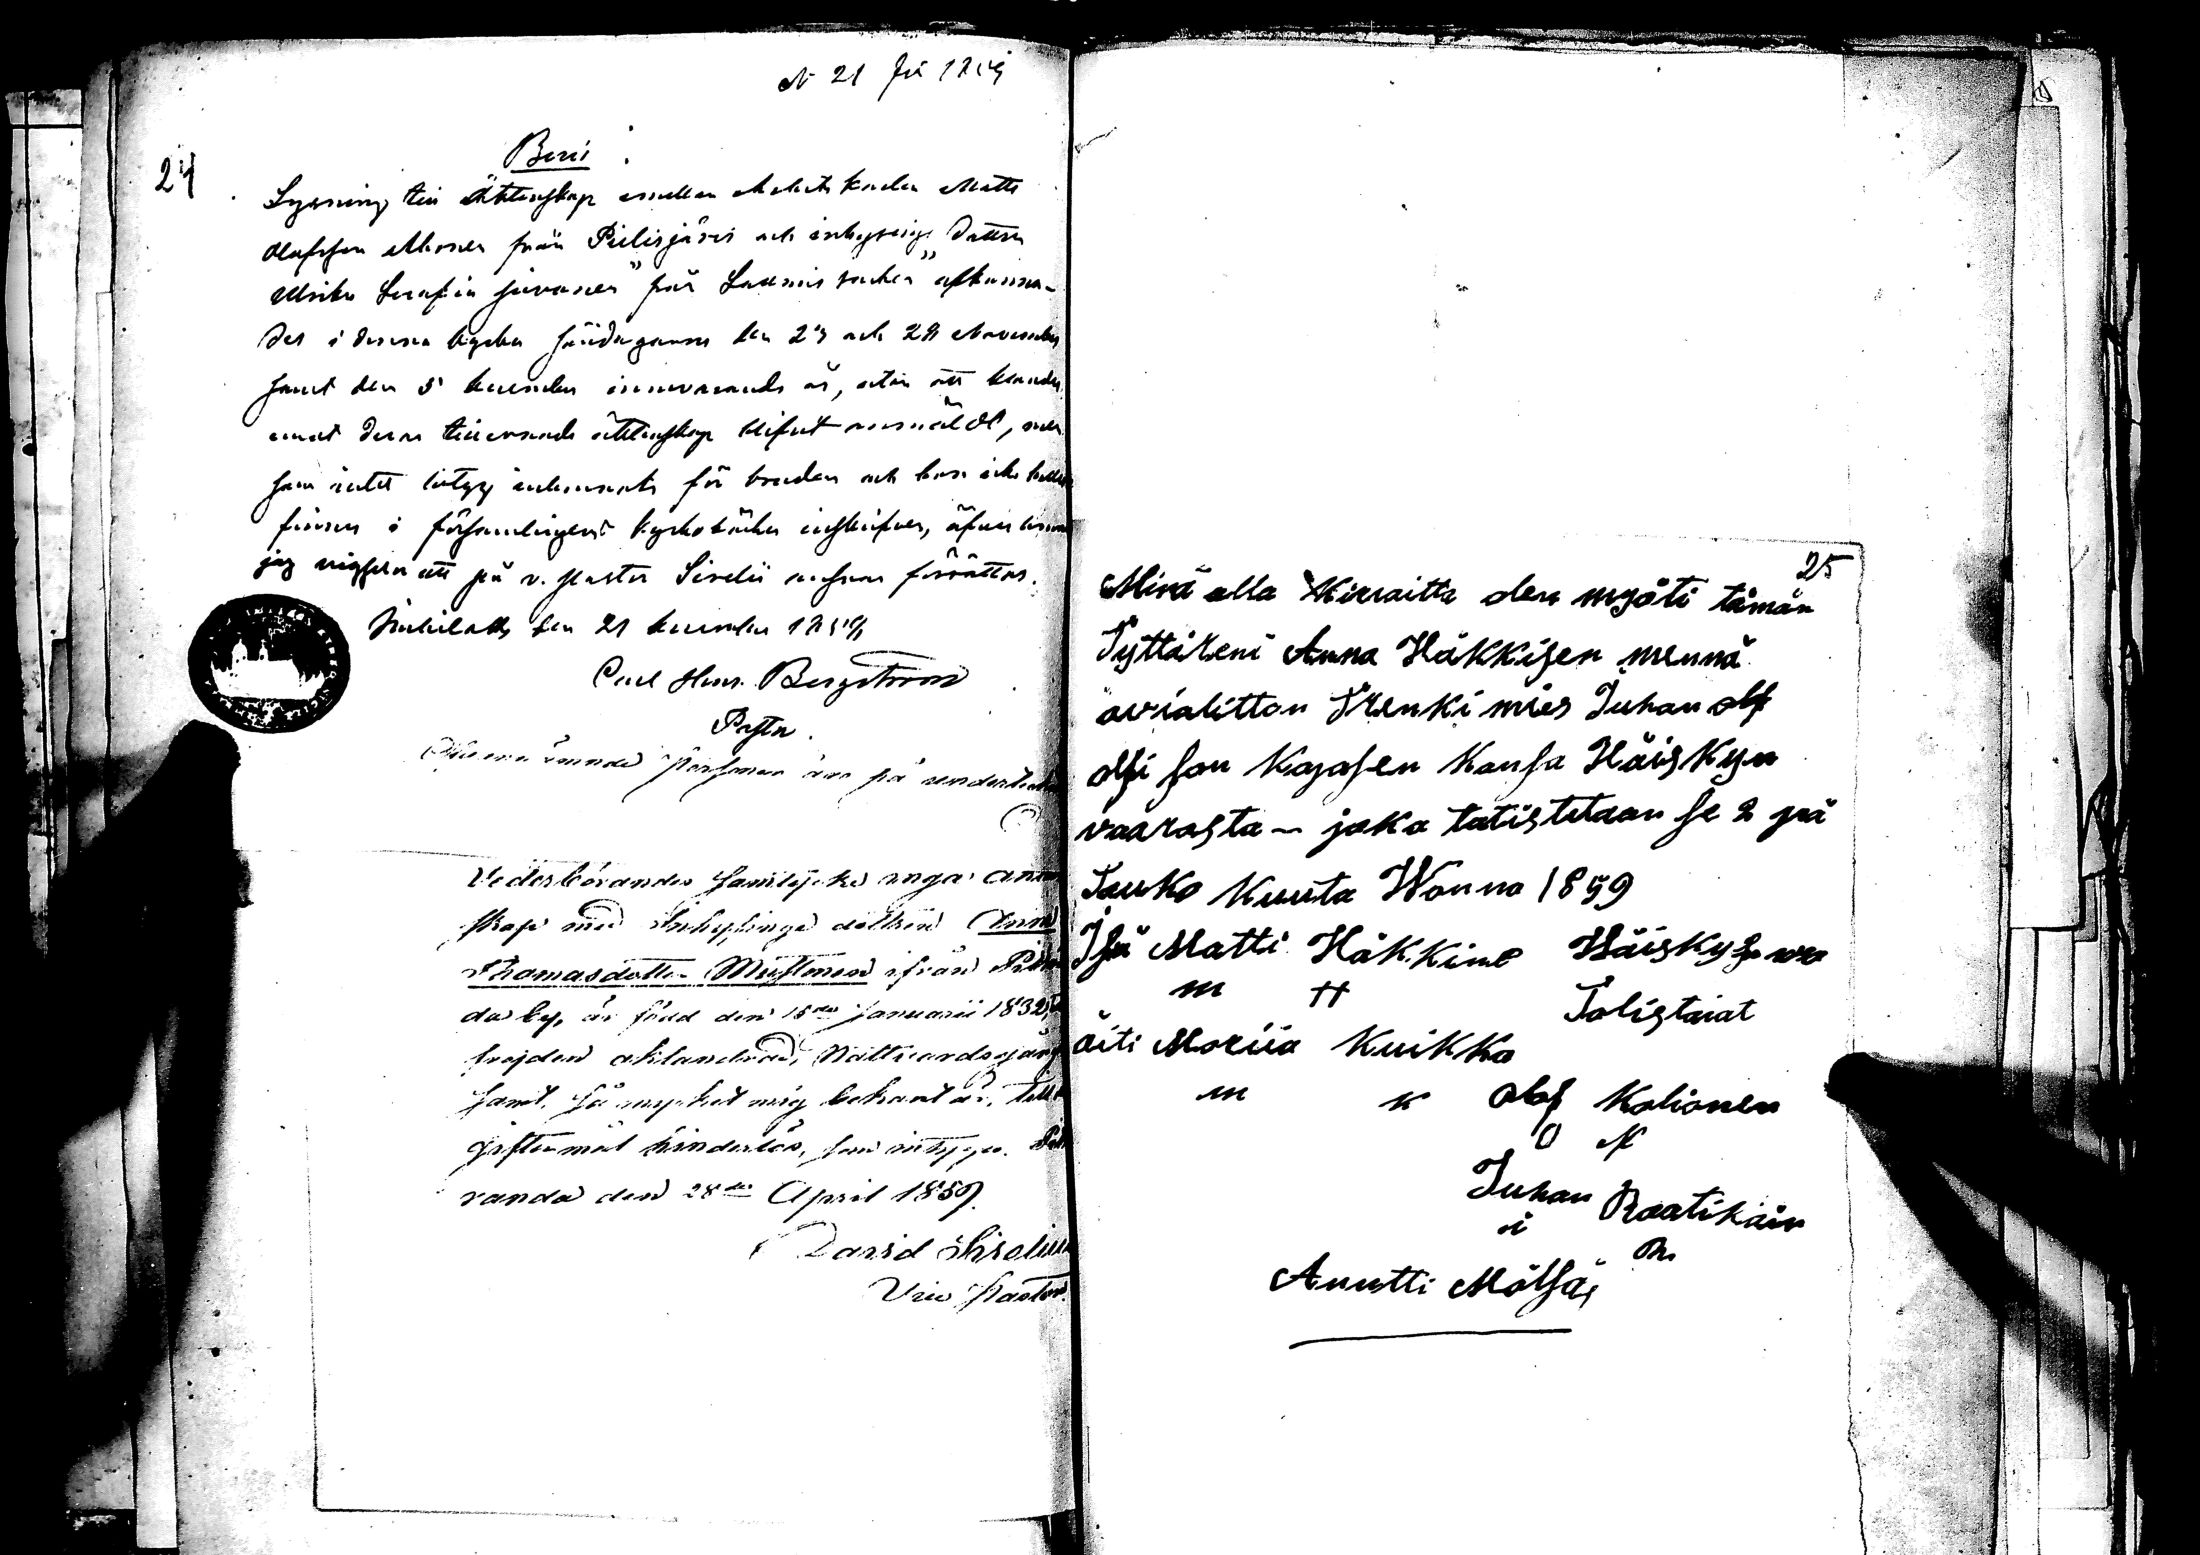 N 21 för 1859
24
Bevis
Lysning till Äktenskap emellan Arbetskarlen Matts
Olofsson från Pielisjärvi och inhysinge dottren
Ulrika Serafia Juvonen från afkunna-
des i denna kyrka söndagarne den och 28 November
samt den 5 December innevarande år, utan att hinder
emot deras tillernade äktenskap blifvit anmäldt, men
som intet betyg inkommit för bruden och hon icke heller
finnes i församlingens kyrkoböcker inskrifven, äfven
jag vigseln att på v. Pastor Sirelii ansvar förrättas.
den 21 December 1859
Carl Henr. Bergström
Pastor.
personer äro på
Vederbörandes samtycke inga
skap med Inhysinge dottren Anna
Thomasdotter Mustonen ifrån
da by, är född den 15de Januarii 1832,
frejden oklandrad, Nattvardsgång
samt, så mycket mig bekant är, till
giftermål hinderlös, som intygar.
randa den 28de April 1859.
David Sirelius
Vice Pastor.
25
Minä alla Kirraitta olen myöti tämän
Tyttäreni Anna Häkkisen mennä
avialitton Trenki mies Juhan olf
olfi son Kajasen Kansa Häiskyn
vaarasta - joka totistetaan se 2 piä
Touko Kuuta Wonna 1859
Jsä Matti Häkkine Häisky
m H
Tolistaiat
äiti Moriia Kuikka
m K
Olof Kolionen
O K
Juhan Raatikain
i R
Anutti Mölsäi